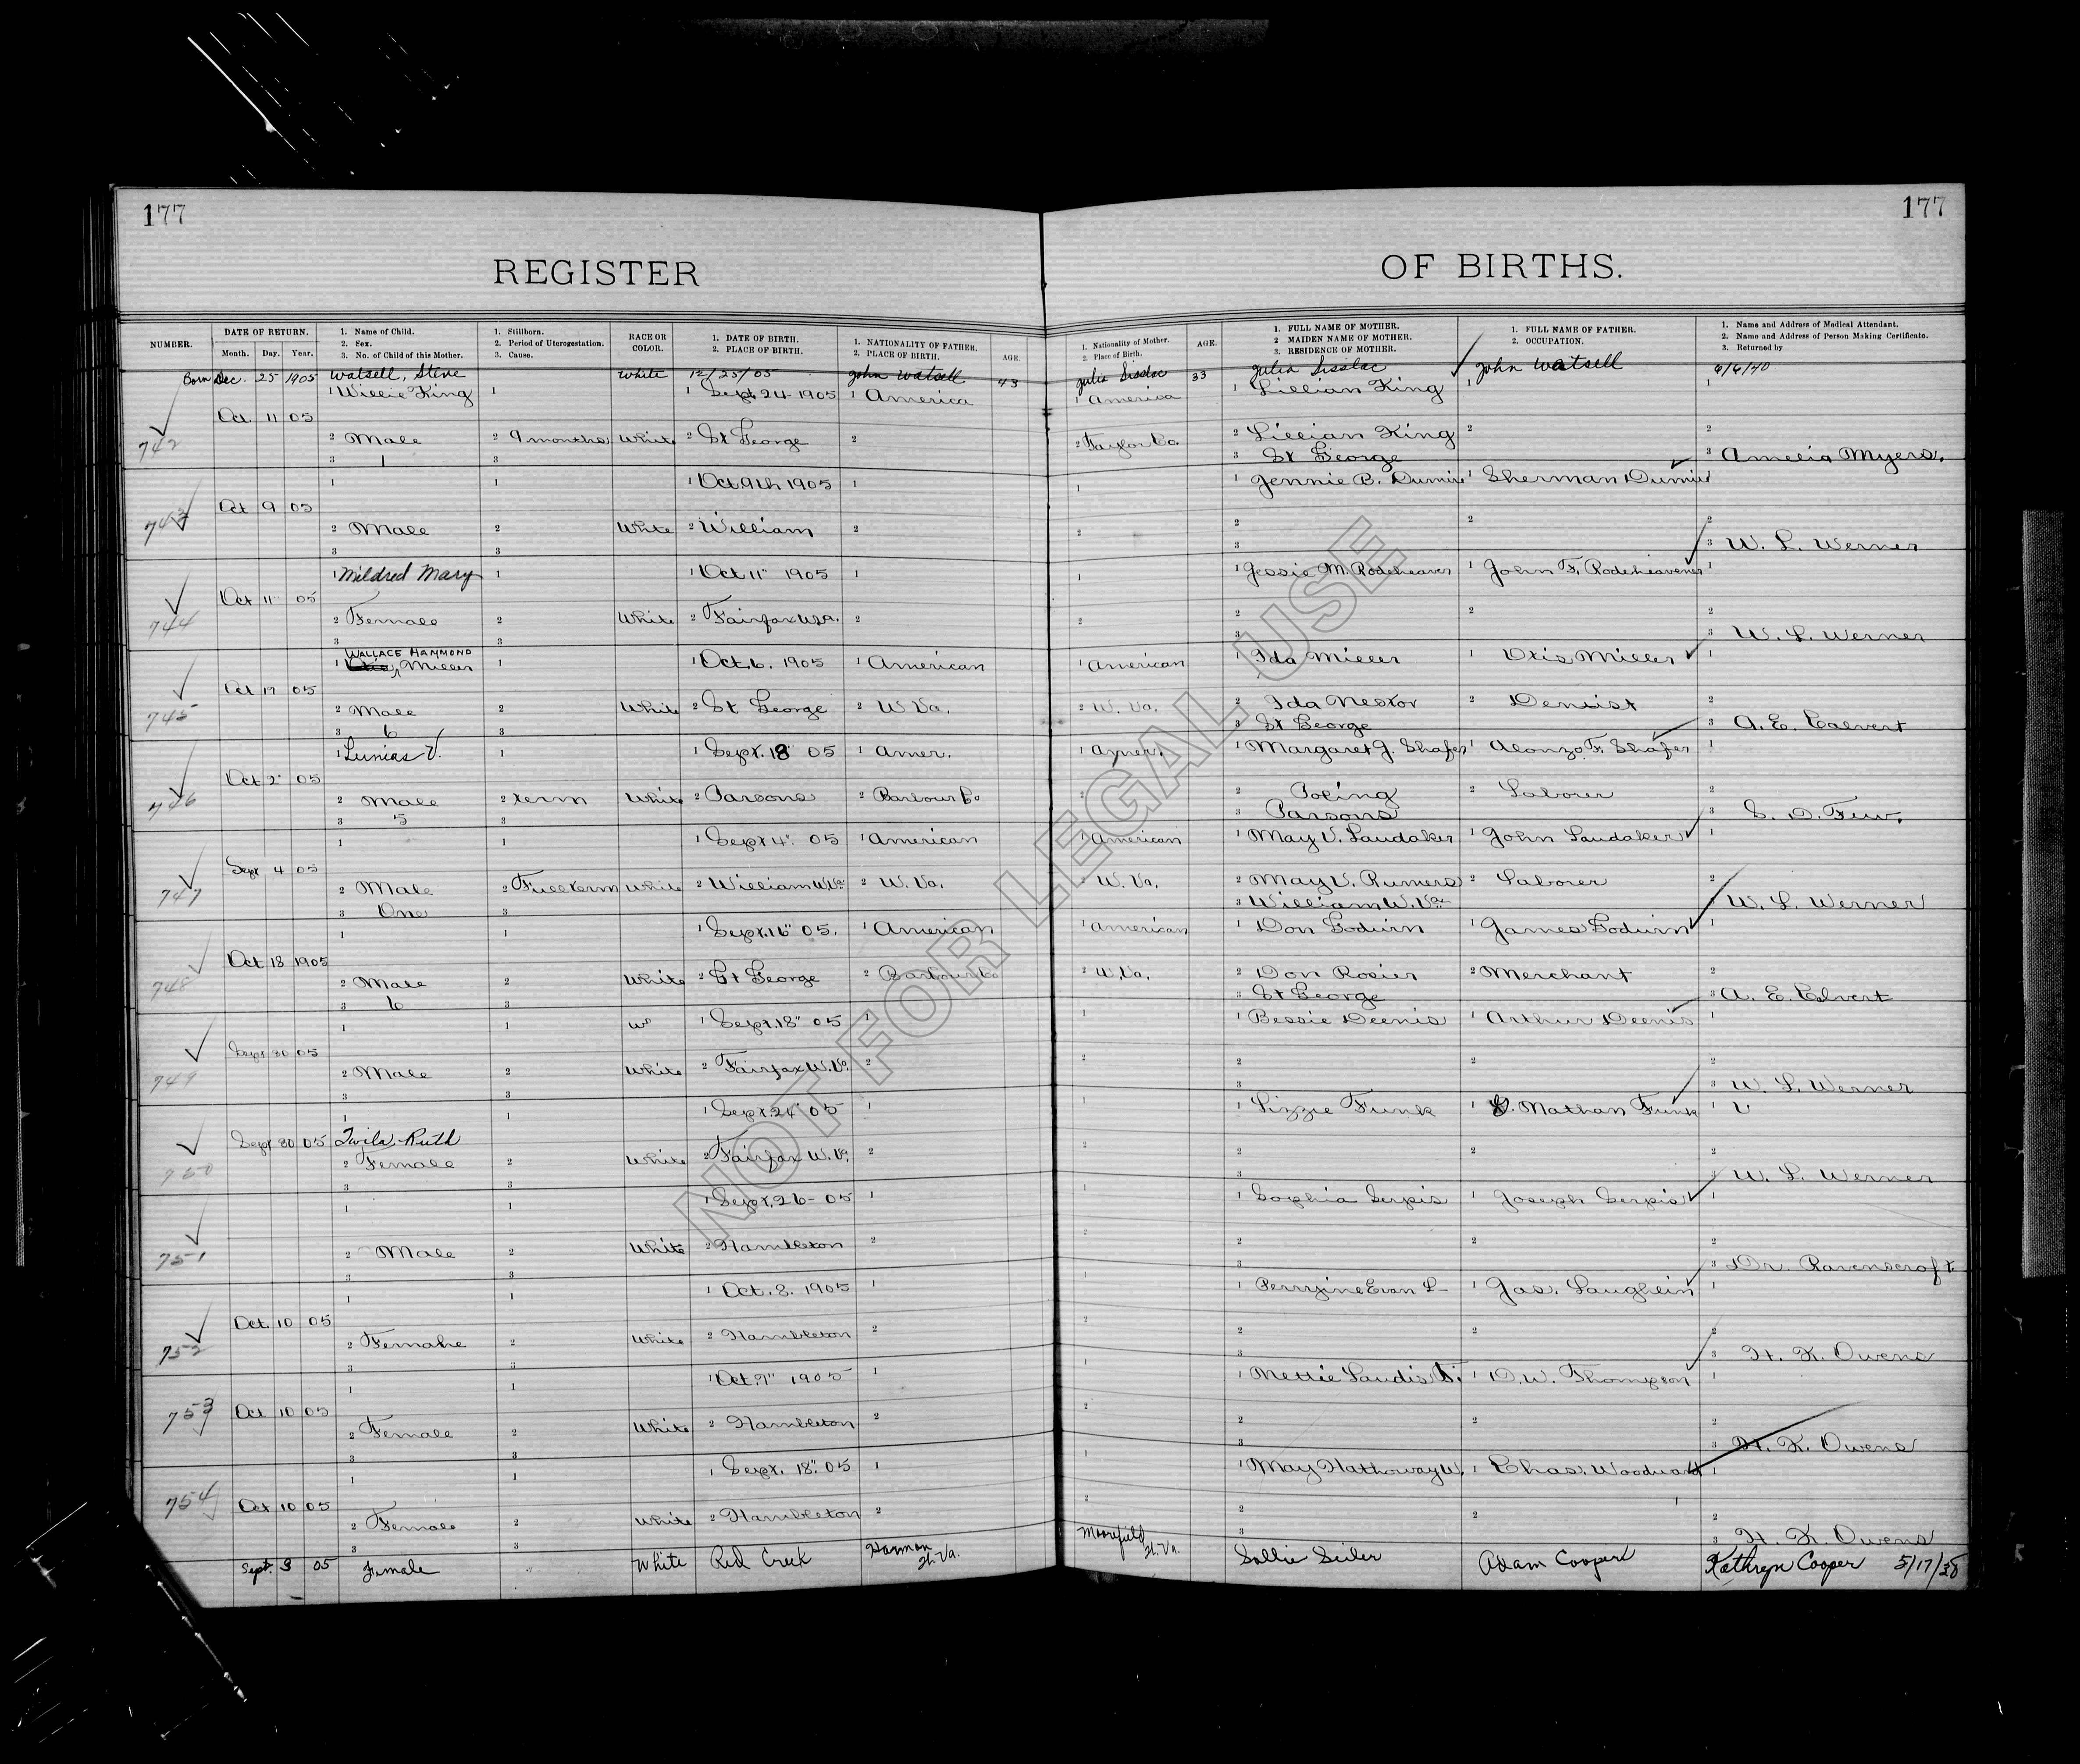 177
177
REGISTER
OF BIRTHS.
NUMBER.
DATE OF RETURN.
Month. Day. Year.
1. Name of Child.
2. Sex.
3. No. of Child of this Mother.
1. Stillborn.
2. Period of Uterogestation.
3. Cause.
RACE OR COLOR.
1. DATE OF BIRTH.
2. PLACE OF BIRTH.
1. NATIONALITY OF FATHER.
2. PLACE OF BIRTH.
AGE.
1. Nationality of Mother.
2. Place of Birth.
AGE.
1. FULL NAME OF MOTHER.
2 MAIDEN NAME OF MOTHER.
3. RESIDENCE OF MOTHER.
1. FULL NAME OF FATHER.
2. OCCUPATION.
1. Name and Address of Medical Attendant.
2. Name and Address of Person Making Certificate.
3. Returned by
Born Dec. 25 1905 Watsell, Steve White 12/25/05 John Watsell 43 Julia Sisslac 33 Julia Sisslac John Watsell 6/6/40
1 Willie King 1 1 Sept 24 1905 1 America 1 America 1 Lillian King 1 1
742 Oct. 11 05
2 Male 2 9 months White 2 St George 2 2 Taylor Co. 2 Lillian King 2 2
3 1 3 3 St George 3 Amelia Myers.
1 1 1 Oct 9th 1905 1 1 1 Jennie B. Dumire 1 Sherman Dumire
743 Oct 9 05
2 Male 2 White 2 William 2 2 2 2 2
3 3 3 3 W. L. Werner
1 Mildred Mary 1 1 Oct 11" 1905 1 1 1 Jessie M. Rodeheaver 1 John F. Rodeheavener 1
744 Oct 11 05
2 Female 2 White 2 Fairfax W.Va. 2 2 2 2 2
3 3 3 3 W. L. Werner
WALLACE HAMMOND
1 Miller 1 1 Oct, 6. 1905 1 American 1 American 1 Ida Miller 1 Otis Miller 1
745 Oct 17 05
2 Male 2 White 2 St George 2 W Va. 2 W. Va. 2 Ida Nestor 2 Dentist 2
3 6 3 3 St George 3 A. E. Calvert
1 Lunias V. 1 1 Sept. 18" 05 1 Amer. 1 Amer. 1 Margaret J. Shafer 1 Alonzo F. Shafer 1
746 Oct 2" 05
2 Male 2 term White 2 Parsons 2 Barbour Co 2 2 Poling 2 Laborer 2
3 5 3 3 Parsons 3 S. D. Few.
1 1 1 Sept 4" 05 1 American 1 American 1 May V. Laudaker 1 John Laudaker 1
747 Sept 4 05
2 Male 2 Full term White 2 William W.Va. 2 W. Va. 2 W. Va. 2 May V. Rumers 2 Laborer 2
3 One 3 3 William W.Va. 3 W. L. Werner
1 1 1 Sept. 16" 05. 1 American 1 American 1 Don Godwin 1 James Godwin 1
748 Oct 18 1905
2 Male 2 White 2 St George 2 Barbour Co 2 W.Va. 2 Don Rosier 2 Merchant 2
3 6 3 3 St George 3 A. E. Calvert
1 1 1 Sept. 18" 05 1 1 1 Bessie Deenis 1 Arthur Deenis 1
749 Sept 30 05
2 Male 2 White 2 Fairfax W.Va. 2 2 2 2 2
3 3 3 3 W. L. Werner
1 1 1 Sept. 24" 05 1 1 1 Lizzie Funk 1 Nathan Funk 1
750 Sept 30 05 Twila Ruth
2 Female 2 White 2 Fairfax W.Va. 2 2 2 2 2
3 3 3 3 W. L. Werner
1 1 1 Sept. 26- 05 1 1 1 Sophia Serpis 1 Joseph Serpis 1
751
2 Male 2 White 2 Hambleton 2 2 2 2 2
3 3 3 3 Dr. Ravenscroft
1 1 1 Oct. 8. 1905 1 1 1 Perryine Evan L- 1 Jas. Laughlin 1
752 Oct. 10 05
2 Female 2 White 2 Hambleton 2 2 2 2 2
3 3 3 3 H. K. Owens
1 1 1 Oct. 7" 1905 1 1 1 Nettie Laudis T. 1 D.W. Thompson 1
753 Oct 10 05
2 Female 2 White 2 Hambleton 2 2 2 2 2
3 3 3 3 H. K. Owens
1 1 1 Sept. 18". 05 1 1 1 May Hathoway W. 1 Chas. Woodward 1
754 Oct 10 05
2 Female 2 White 2 Hambleton 2 2 2 2 2
3 3 3 3 H. K. Owens
Sept. 3 05 Female White Red Creek Harman W.Va. Moorefield W.Va. Sallie Seiler Adam Cooper Kathryn Cooper 5/17/38
NOT FOR LEGAL USE